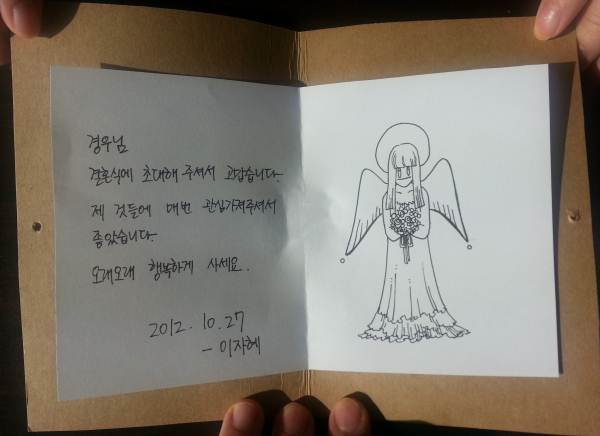 경우님
결혼식에 초대해 주셔서 고맙습니다.
제 것들에 매번 관심가져주셔서
좋았습니다.
오래오래 행복하게 사세요.
2012. 10. 27
- 이자혜